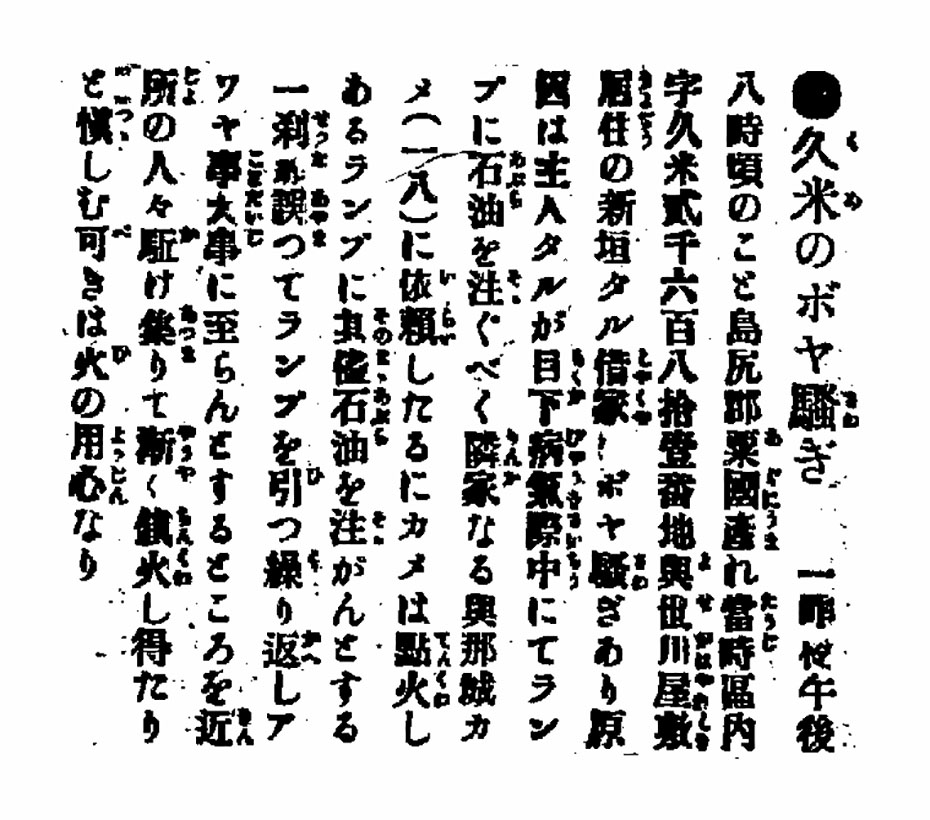 ●久米のボヤ騷ぎ　一昨夜午後
八時頃のこと島尻郡粟國產れ當時區内
字久米貳千六百八拾壹番地與世川屋敷
居住の新垣タル借家にボヤ騷ぎあり原
因は主人タルが目下病氣際中にてラン
プに石油を注ぐべく隣家なる與那城カ
メ（一八）に依頼したるにカメは點火し
あるランプに其儘石油を注がんとする
一刹那誤つてランプを引つ繰り返しア
ワヤ事大事に至らんとするところを近
所の人々駈け集りて漸く鎮火し得たり
と愼しむ可きは火の用心なり